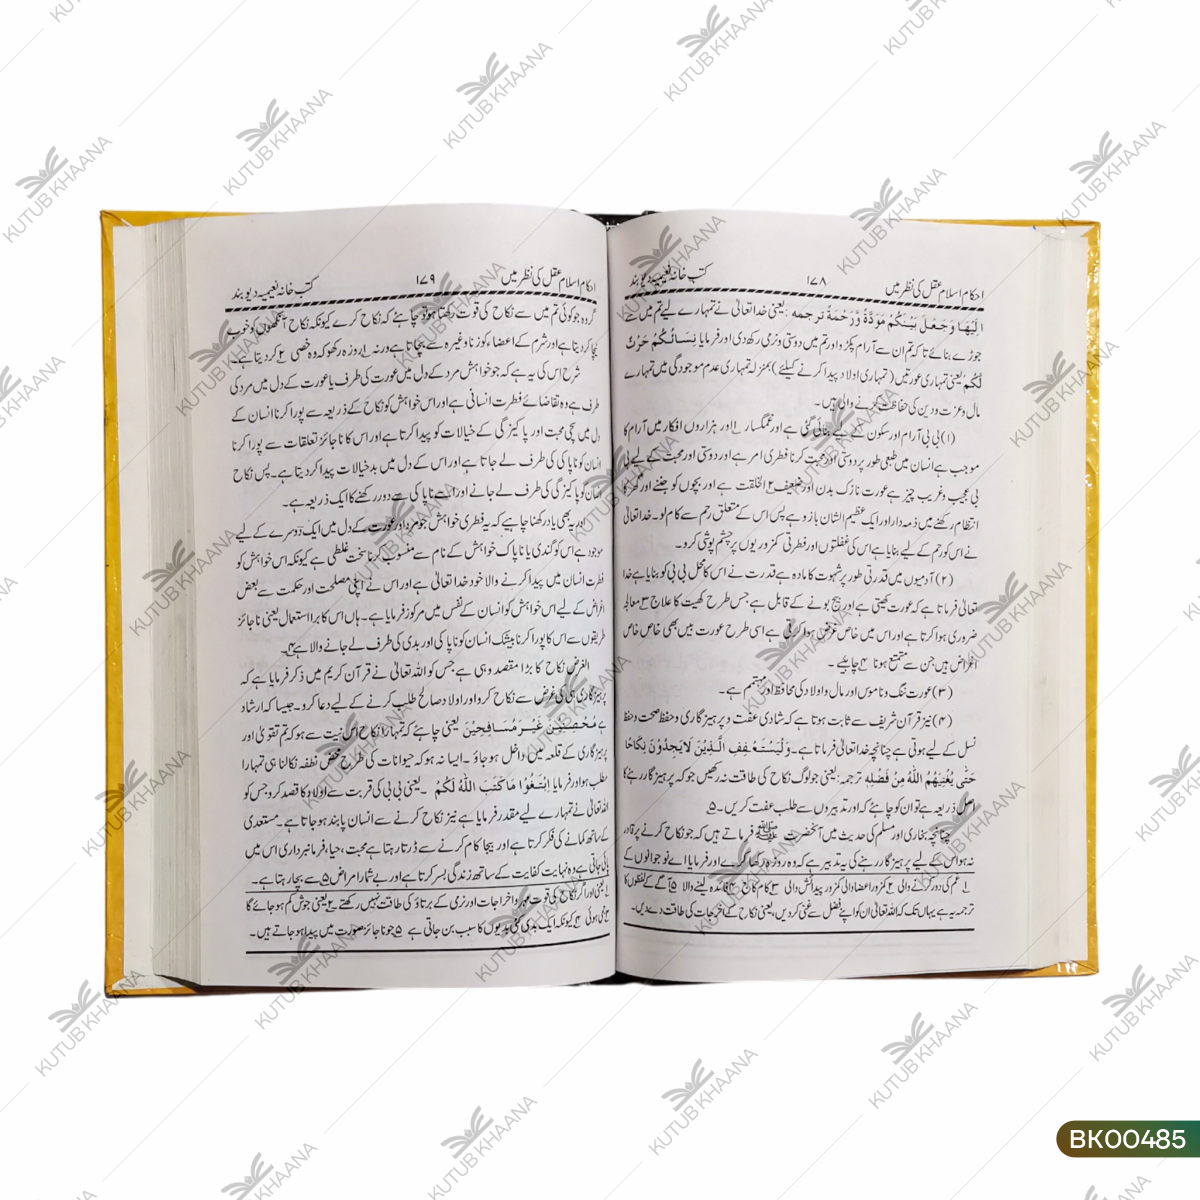 احکام اسلام عقل کی نظر میں ۱۷۸ کتب خانہ نعیمیہ دیوبند
اِلَیْهَا وَجَعَلَ بَیْنَکُمْ مَوَدَّةً وَّرَحْمَةً ترجمہ: یعنی خدا تعالیٰ نے تمہارے لیے تم میں سے
جوڑے بنائے تاکہ تم ان سے آرام پکڑو اور تم میں دوستی ونرمی رکھ دی اور فرمایا نِسَائُکُمْ حَرْثٌ
لَّکُمْ یعنی تمہاری عورتیں (تمہاری اولاد پیدا کرنے کیلئے) بمنزلہ تمہاری عدم موجودگی میں تمہارے
مال وعزت ودین کی حفاظت کرنے والی ہیں۔
(۱) بی بی آرام اور سکون کے لیے بنائی گئی ہے اور غمگسار ۱ اور ہزاروں افکار میں آرام کا
موجب ہے انسان میں طبعی طور پر دوستی اور محبت کرنا فطری امر ہے اور دوستی اور محبت کے لیے بی
بی عجیب وغریب چیز ہے عورت نازک بدن اور ضعیف ۲ الخلقت ہے اور بچوں کو جننے اور گھر کا
انتظام رکھنے میں ذمہ دار اور ایک عظیم الشان بازو ہے پس اس کے متعلق رحم سے کام لو۔ خدا تعالیٰ
نے اس کو رحم کے لیے بنایا ہے اس کی غفلتوں اور فطرتی کمزوریوں پر چشم پوشی کرو۔
(۲) آدمیوں میں قدرتی طور پر شہوت کا مادہ ہے قدرت نے اس کا محل بی بی کو بنایا ہے خدا
تعالیٰ فرماتا ہے کہ عورت کھیتی ہے اور بیج بونے کے قابل ہے جس طرح کھیت کا علاج ۳ معالجہ
ضروری ہوا کرتا ہے اور اس میں خاص غرض ہوا کرتی ہے اسی طرح عورت میں بھی خاص خاص
اغراض ہیں جن سے متمتع ہونا ۴ چاہیے۔
(۳) عورت ننگ وناموس اور مال واولاد کی محافظ اور مہتمم ہے۔
(۴) نیز قرآن شریف سے ثابت ہوتا ہے کہ شادی عفت وپرہیزگاری وحفظ صحت وحفظ
نسل کے لیے ہوتی ہے چنانچہ خدا تعالیٰ فرماتا ہے۔ وَلْیَسْتَعْفِفِ الَّذِیْنَ لَایَجِدُوْنَ نِکَاحًا
حَتّٰی یُغْنِیَهُمُ اللّٰهُ مِنْ فَضْلِهٖ ترجمہ: یعنی جو لوگ نکاح کی طاقت نہ رکھیں جو کہ پرہیزگار رہنے کا
اصل ذریعہ ہے تو ان کو چاہئے کہ اور تدبیروں سے طلب عفت کریں۔ ۵
چنانچہ بخاری اور مسلم کی حدیث میں آنحضرت ﷺ فرماتے ہیں کہ جو نکاح کرنے پر قادر
نہ ہو اس کے لیے پرہیزگار رہنے کی یہ تدبیر ہے کہ وہ روزہ رکھا کرے اور فرمایا اے نوجوانوں کے
۱ غم کی دور کرنے والی ۲ کمزور اعضا والی کمزور پیدائش والی ۳ کام کاج ۴ فائدہ لینے والا ۵ آگے کے لفظوں کا
ترجمہ یہ ہے یہاں تک کہ اللہ تعالیٰ ان کو اپنے فضل سے غنی کردیں، یعنی نکاح کے اخرجات کی طاقت دے دیں۔
احکام اسلام عقل کی نظر میں ۱۷۹ کتب خانہ نعیمیہ دیوبند
گروہ جو کوئی تم میں سے نکاح کی قوت رکھتا ہو وہ چاہئے کہ نکاح کرے کیونکہ نکاح آنکھوں کو خوب
نیچا کر دیتا ہے اور شرم کے اعضاء کو زنا وغیرہ سے بچاتا ہے ورنہ ۱ روزہ رکھو کہ وہ خصی ۲ کر دیتا ہے۔
شرح اس کی یہ ہے کہ جو خواہش مرد کے دل میں عورت کی طرف یا عورت کے دل میں مرد کی
طرف ہے وہ تقاضائے فطرت انسانی ہے اور اس خواہش کو نکاح کے ذریعہ سے پورا کرنا انسان کے
دل میں سچی محبت اور پاکیزگی کے خیالات کو پیدا کرتا ہے اور اس کا ناجائز تعلقات سے پورا کرنا
انسان کو ناپاکی کی طرف لے جاتا ہے اور اس کے دل میں بد خیالات پیدا کر دیتا ہے۔ پس نکاح
انسان کو پاکیزگی کی طرف لے جانے اور اسے ناپاکی سے دور رکھنے کا ایک ذریعہ ہے۔
اور یہ بھی یاد رکھنا چاہیے کہ یہ فطری خواہش جو مرد اور عورت کے دل میں ایک دوسرے کے لیے
موجود ہے اس کو گندی یا ناپاک خواہش کے نام سے منسوب کرنا سخت غلطی ہے کیونکہ اس خواہش کو
فطرت انسان میں پیدا کرنے والا خود خدا تعالیٰ ہے اور اس نے اپنی مصلحت اور حکمت سے بعض
اغراض کے لیے اس خواہش کو انسان کے نفس میں مرکوز فرمایا ہے۔ ہاں اس کا برا استعمال یعنی ناجائز
طریقوں سے اس کا پورا کرنا بیشک انسان کو ناپاکی اور بدی کی طرف لے جانے والا ہے ۴۔
الغرض نکاح کا بڑا مقصد وہی ہے جس کو اللہ تعالیٰ نے قرآن کریم میں ذکر فرمایا ہے کہ
پرہیزگاری ہی کی غرض سے نکاح کرو اور اولاد صالح طلب کرنے کے لیے دعا کرو۔ جیسا کہ ارشاد
ہے مُحْصِنِیْنَ غَیْرَ مُسَافِحِیْنَ یعنی چاہئے کہ تمہارا نکاح اس نیت سے ہو کہ تم تقویٰ اور
پرہیزگاری کے قلعہ میں داخل ہو جاؤ۔ ایسا نہ ہو کہ حیوانات کی طرح محض نطفہ نکالنا ہی تمہارا
مطلب ہو اور فرمایا اِبْتَغُوْا مَا کَتَبَ اللّٰهُ لَکُمْ ۔ یعنی بی بی کی قربت سے اولاد کا قصد کرو جس کو
اللہ تعالیٰ نے تمہارے لیے مقدر فرمایا ہے نیز نکاح کرنے سے انسان پابند ہو جاتا ہے۔ مستعدی
کے ساتھ کمانے کی فکر کرتا ہے اور بیجا کام کرنے سے ڈرتا رہتا ہے محبت، حیا، فرمانبرداری اس میں
پائی جاتی ہے وہ نہایت کفایت کے ساتھ زندگی بسر کرتا ہے اور بے شمار امراض ۵ سے بچا رہتا ہے۔
۱ یعنی اور اگر نکاح کی قوت مہر واخراجات اور نرمی کے برتاؤ کی طاقت نہیں رکھتے ۲ یعنی جوش کم ہو جائے گا
۳ جمی ہوئی ۴ کیونکہ ایک بدی کئی بدیوں کا سبب بن جاتی ہے ۵ جو ناجائز صورت میں پیدا ہو جاتے ہیں۔
KUTUB KHAANA
BK00485